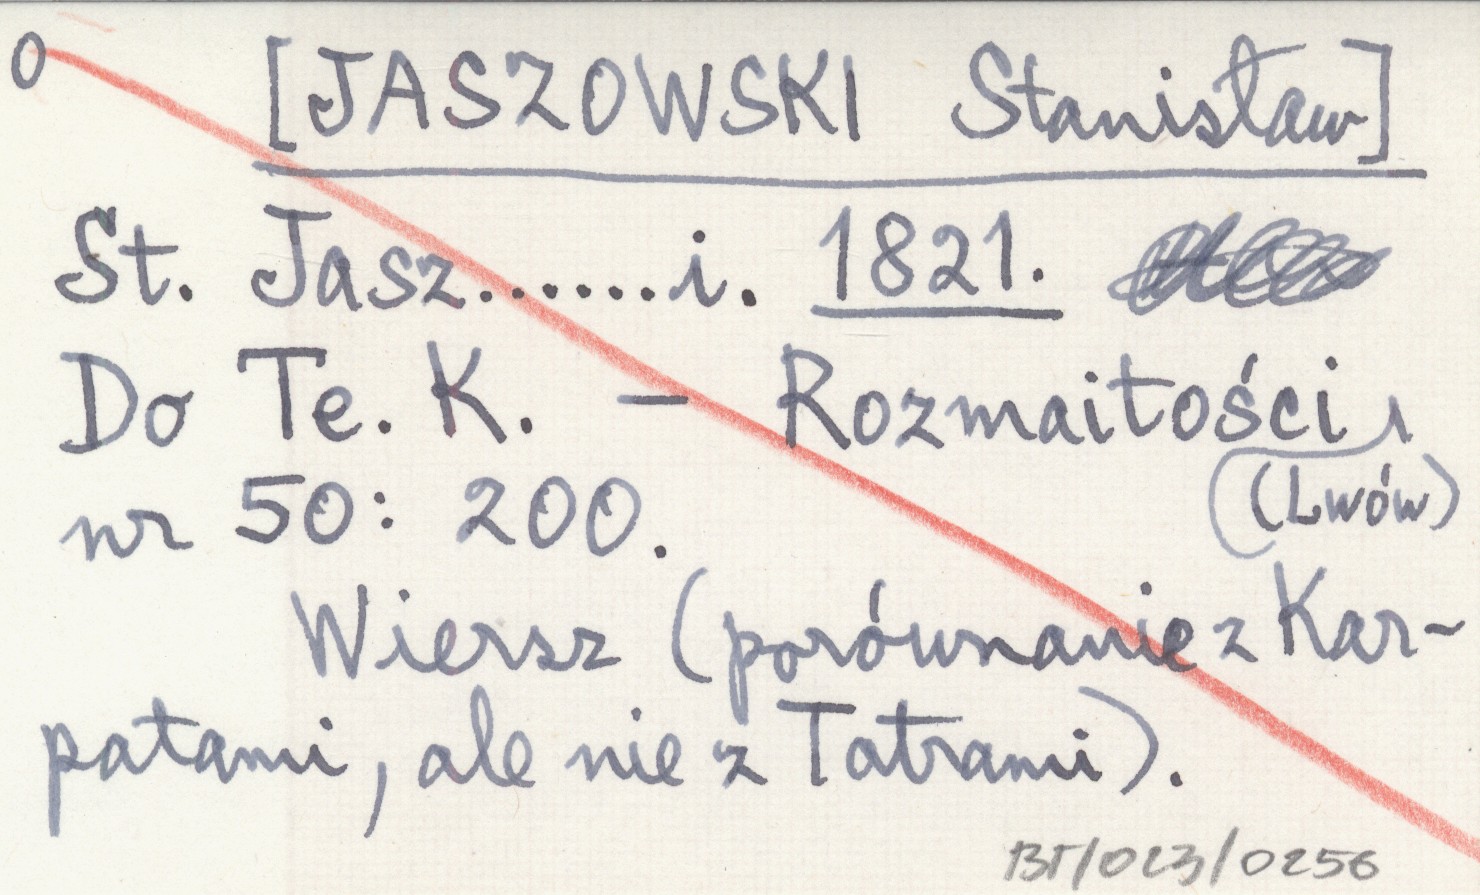 0
[JASZOWSKI Stanisław]
St. Jasz.......i. 1821.
Do Te. K. — Rozmaitości,
(Lwów)
nr 50: 200.
Wiersz (porównanie z Kar-
patami, ale nie z Tatrami).
BT/023/0256